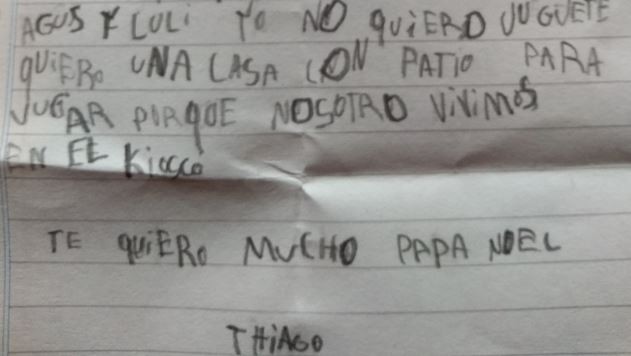 AGUS Y LULI YO NO QUIERO JUGUETE
QUIERO UNA CASA CON PATIO PARA
JUGAR PORQUE NOSOTRO ViViMOS
EN EL Kiosco
TE QUiERO MUCHO PAPA NOEL
THiAGO